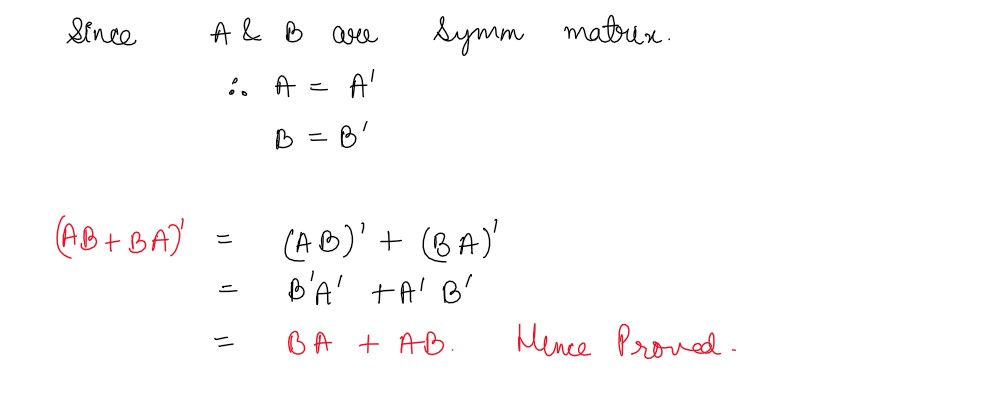 Since A & B are Symm matrix.
∴ A = A'
B = B'
(AB + BA)' = (AB)' + (BA)'
= B'A' + A' B'
= BA + AB. Hence Proved.